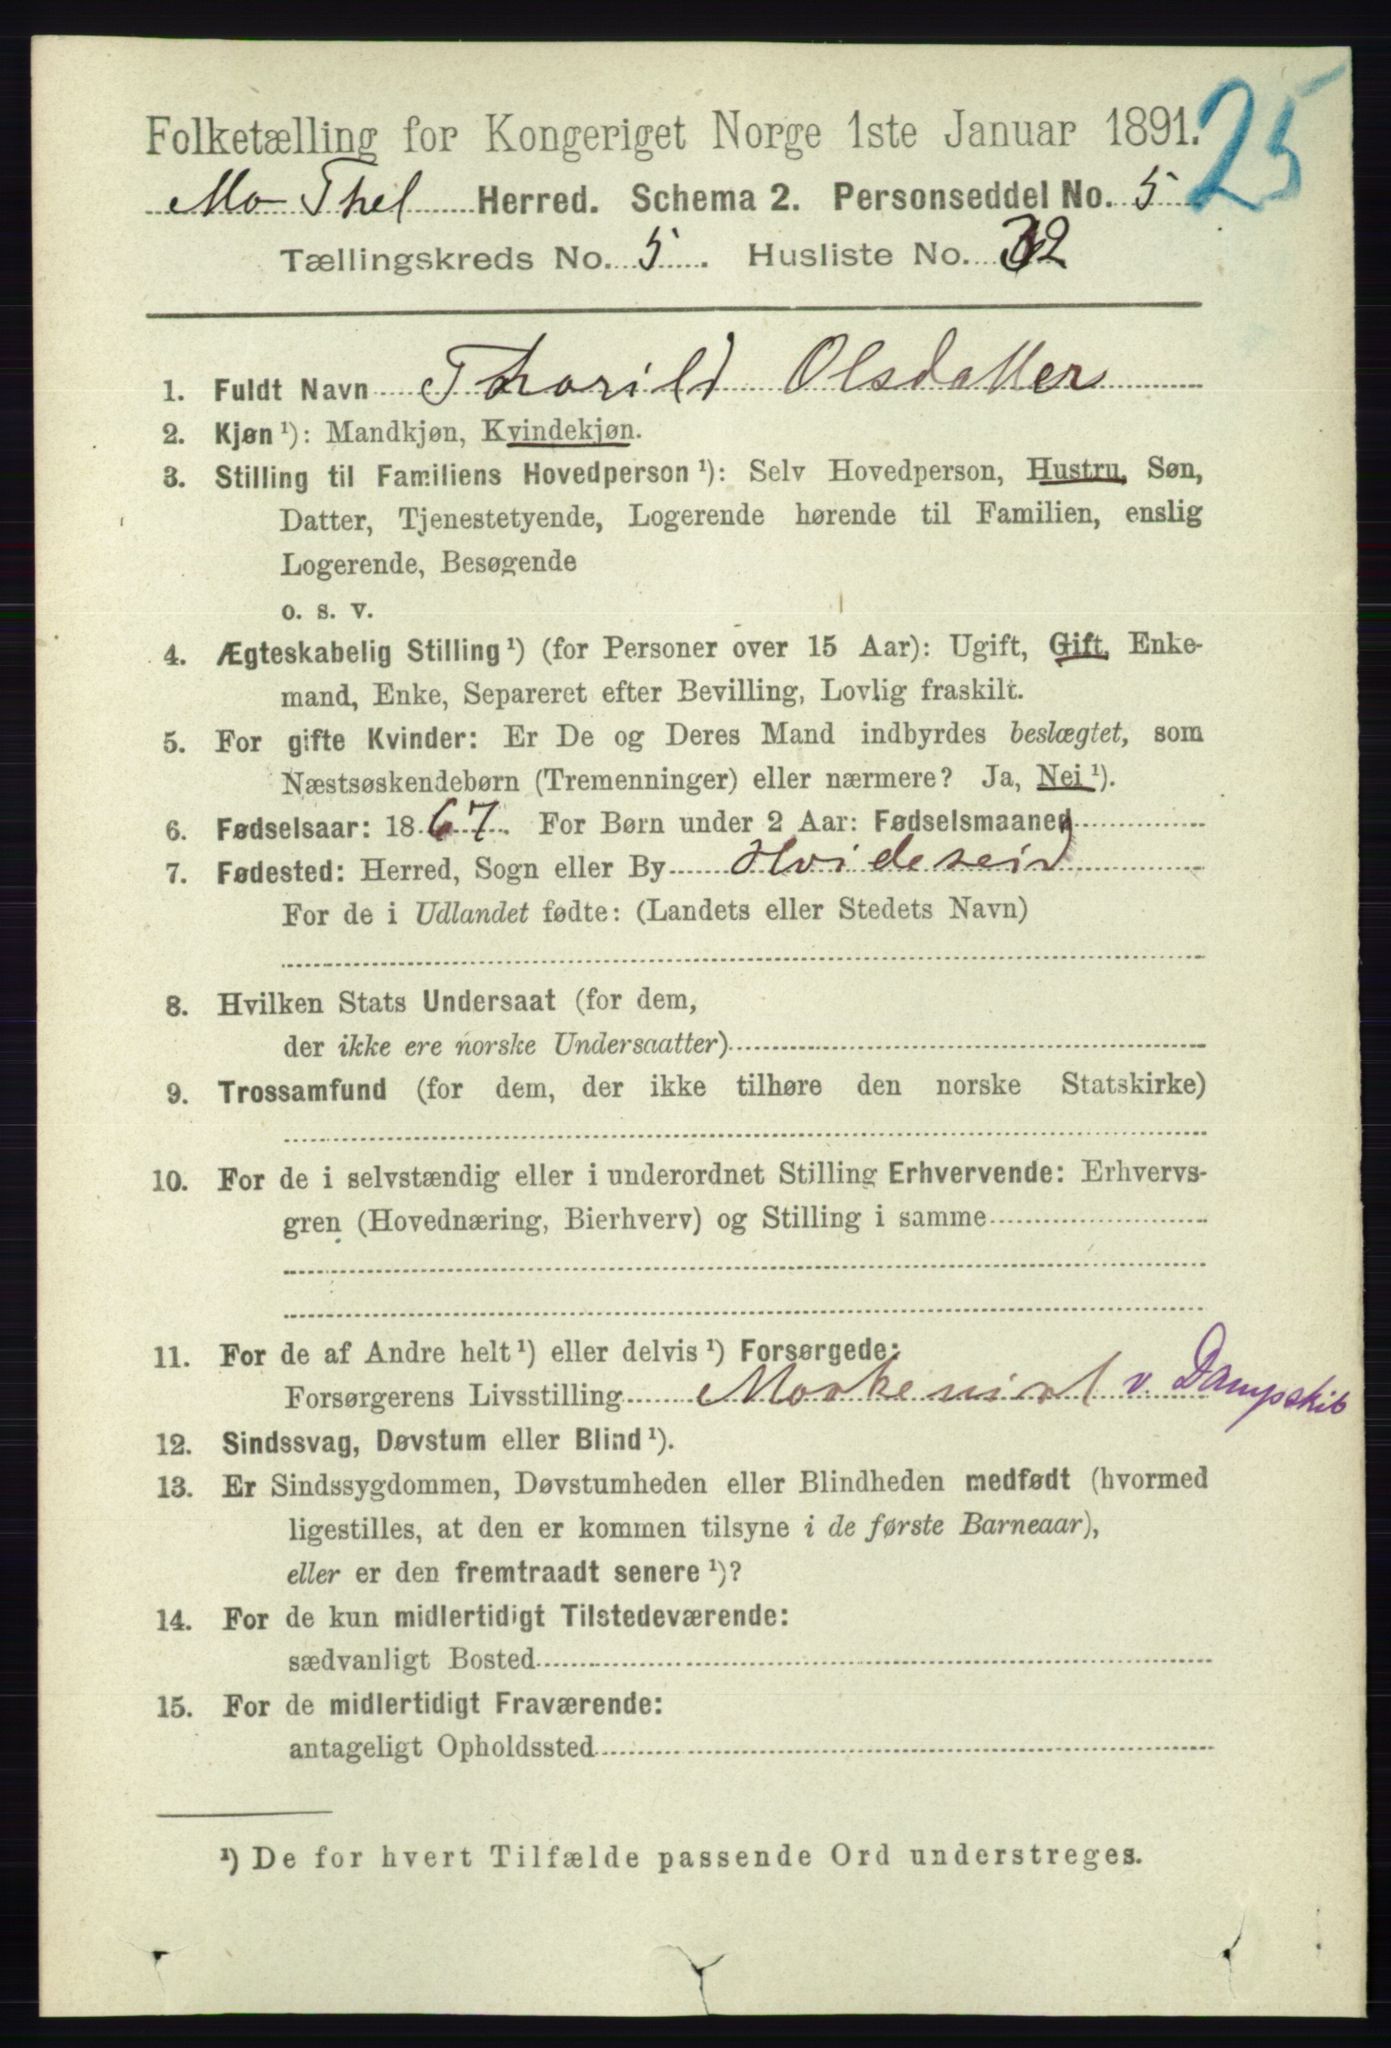 25
Folketælling for Kongeriget Norge 1ste Januar 1891.
Mo Thel Herred. Schema 2. Personseddel No. 5
Tællingskreds No. 5. Husliste No. 32
1. Fuldt Navn Thorild Olsdatter
2. Kjøn ¹): Mandkjøn, Kvindekjøn.
3. Stilling til Familiens Hovedperson ¹): Selv Hovedperson, Hustru, Søn,
Datter, Tjenestetyende, Logerende hørende til Familien, enslig
Logerende, Besøgende
o. s. v.
4. Ægteskabelig Stilling ¹) (for Personer over 15 Aar): Ugift, Gift, Enke-
mand, Enke, Separeret efter Bevilling, Lovlig fraskilt.
5. For gifte Kvinder: Er De og Deres Mand indbyrdes beslægtet, som
Næstsøskendebørn (Tremenninger) eller nærmere? Ja, Nei ¹).
6. Fødselsaar: 1867. For Børn under 2 Aar: Fødselsmaaned
7. Fødested: Herred, Sogn eller By Hvideseid
For de i Udlandet fødte: (Landets eller Stedets Navn)
8. Hvilken Stats Undersaat (for dem,
der ikke ere norske Undersaatter)
9. Trossamfund (for dem, der ikke tilhøre den norske Statskirke)
10. For de i selvstændig eller i underordnet Stilling Erhvervende: Erhvervs-
gren (Hovednæring, Bierhverv) og Stilling i samme
11. For de af Andre helt ¹) eller delvis ¹) Forsørgede:
Forsørgerens Livsstilling v. Dampskib
12. Sindssvag, Døvstum eller Blind ¹).
13. Er Sindssygdommen, Døvstumheden eller Blindheden medfødt (hvormed
ligestilles, at den er kommen tilsyne i de første Barneaar),
eller er den fremtraadt senere ¹)?
14. For de kun midlertidigt Tilstedeværende:
sædvanligt Bosted
15. For de midlertidigt Fraværende:
antageligt Opholdssted
¹) De for hvert Tilfælde passende Ord understreges.